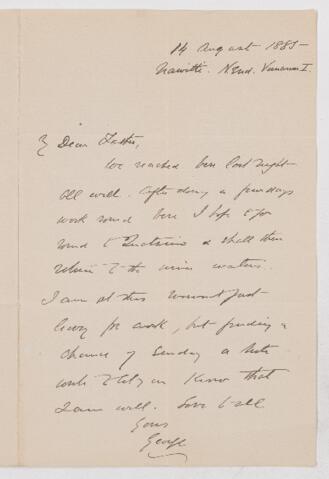 14 August 1885
Nawitti. N End. Vancouver I.
My Dear Father,
We reached here last night
all well. After doing a few days
work round here I hope to go
round to Quatsino & shall then
return to the inner waters.
I am at this moment just
leaving for work, but finding a
chance of sending a note
write to let you know that
I am well. Love to all
Yours
George